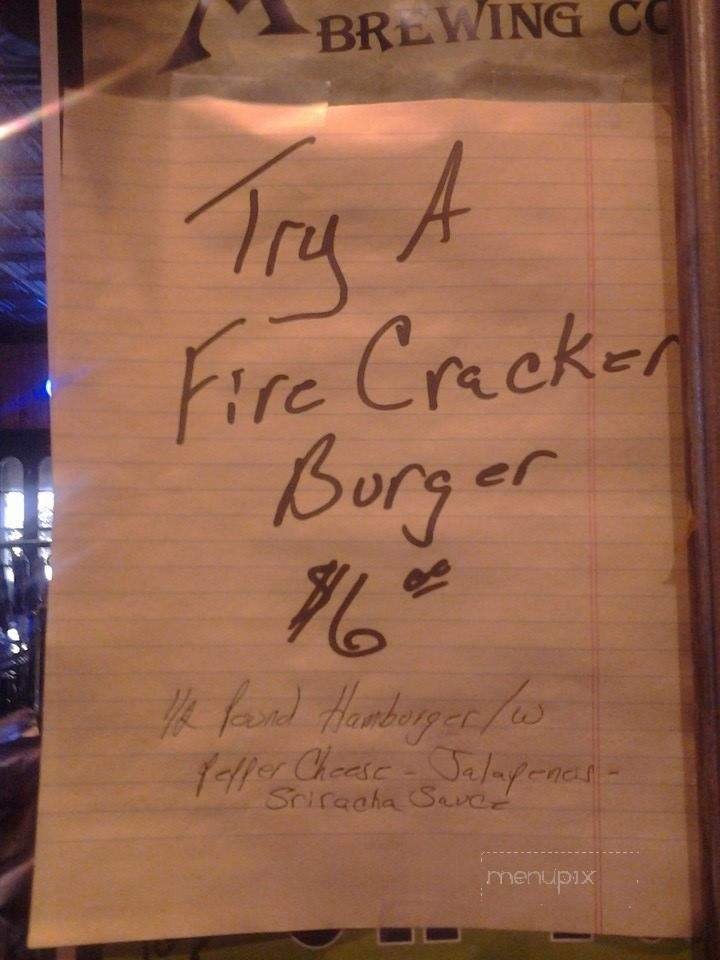 BREWING CO
Try A
Fire Cracker
Burger
$6.00
1/2 Pound Hamburger /w
Pepper Cheese - Jalapenos -
Sriracha Sauce
menupix